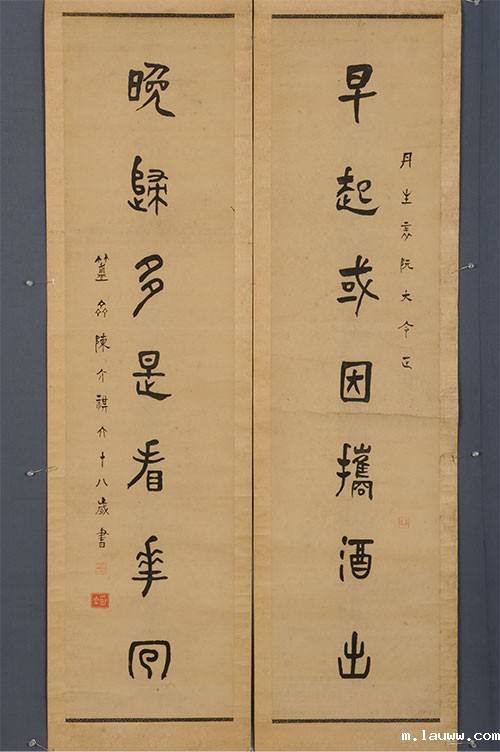 丹生阮大令正
早起或因攜酒出
晚歸多是看華回
簠齋陳介祺六十八歲書
m.lauww.com